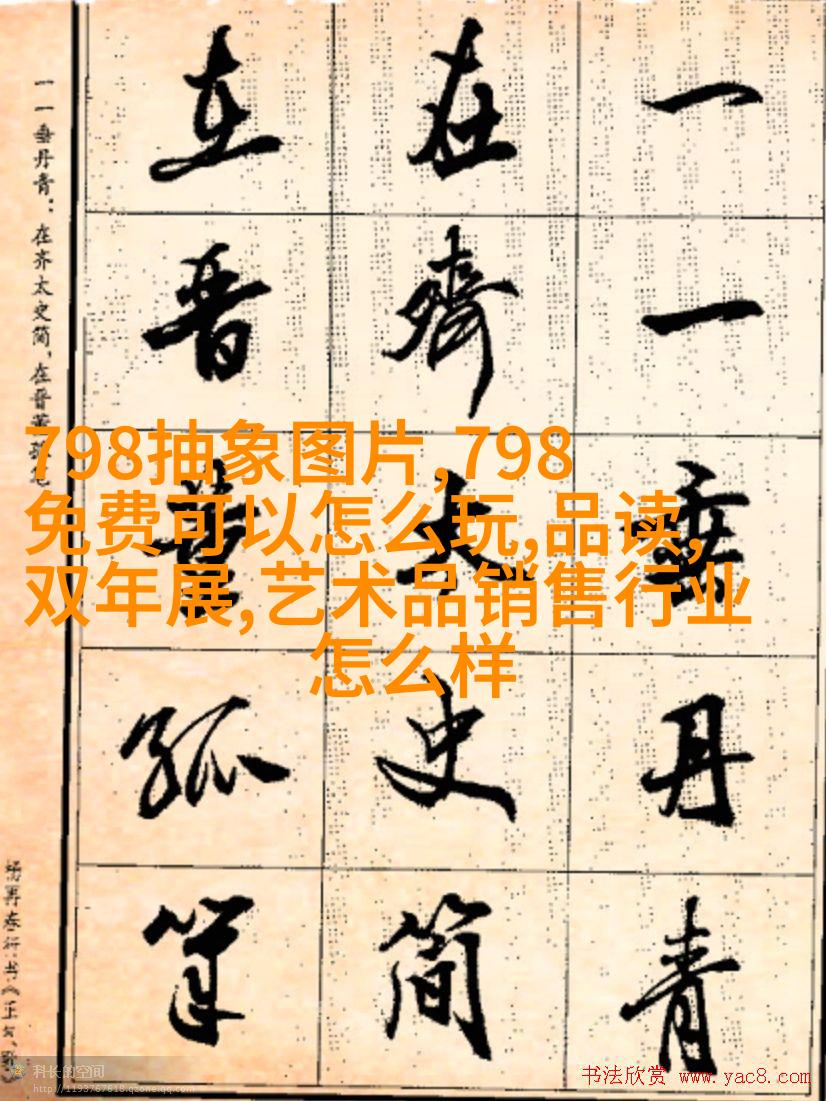 一一垂丹青
在齊太史简
在晋董狐笔
一一垂丹青：在齐太史简，在晋董狐
杨再春行书《正气
798抽象图片,798
免费可以怎么玩,品读,
双年展,艺术品销售行业
怎么样
科长的空间
http://1193767618.qzone.qq.com
书法欣赏 www.yac8.com